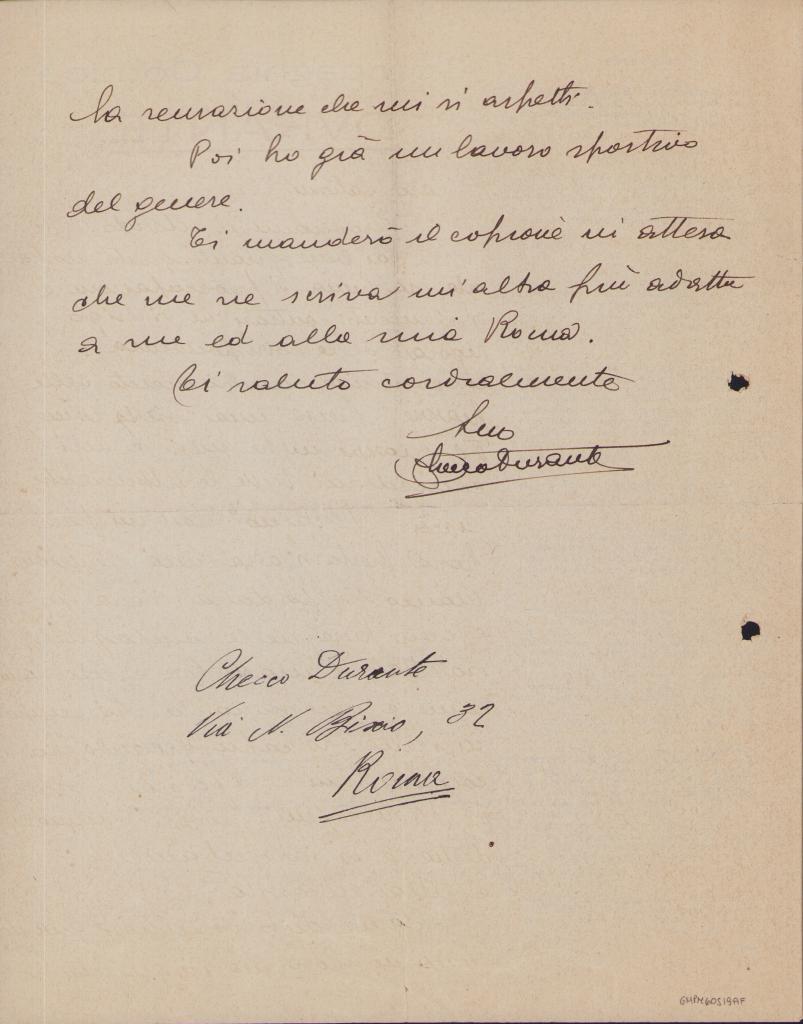 la sensazione che mi si aspetti.
Poi ho già un lavoro sportivo
del genere.
Ti manderò il copione in attesa
che me ne scriva un'altro più adatto
a me ed alla mia Roma.
Ti saluto cordialmente
tuo
Checco Durante
Checco Durante
Via N. Bixio, 32
Roma
GMPM60S19AF